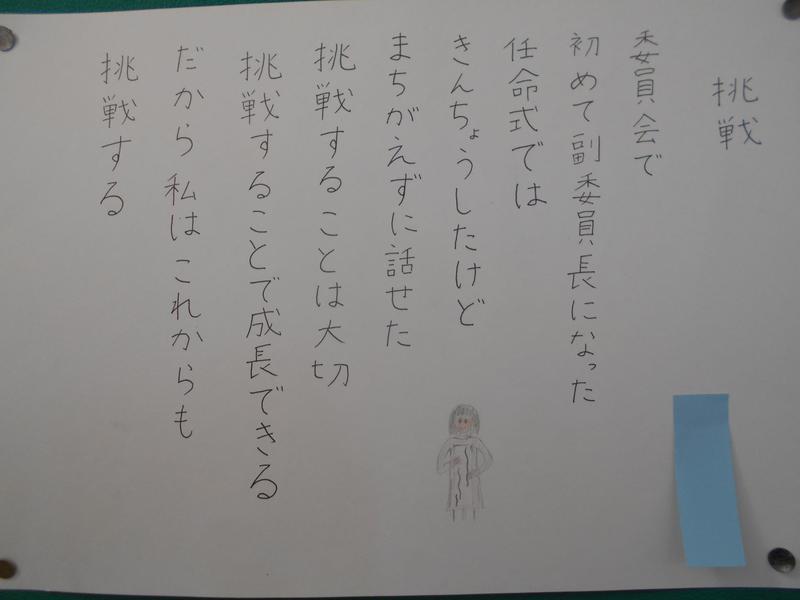 挑戦
委員会で
初めて副委員長になった
任命式では
きんちょうしたけど
まちがえずに話せた
挑戦することは大切
挑戦することで成長できる
だから私はこれからも
挑戦する